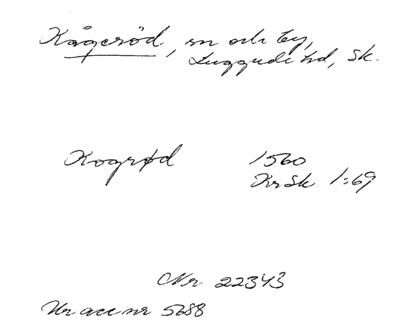 Kågeröd, sn och by,
Luggude hd, Sk.
Kogrød 1560
KrSk 1:69
Nr 22343
Ur acc nr 5688